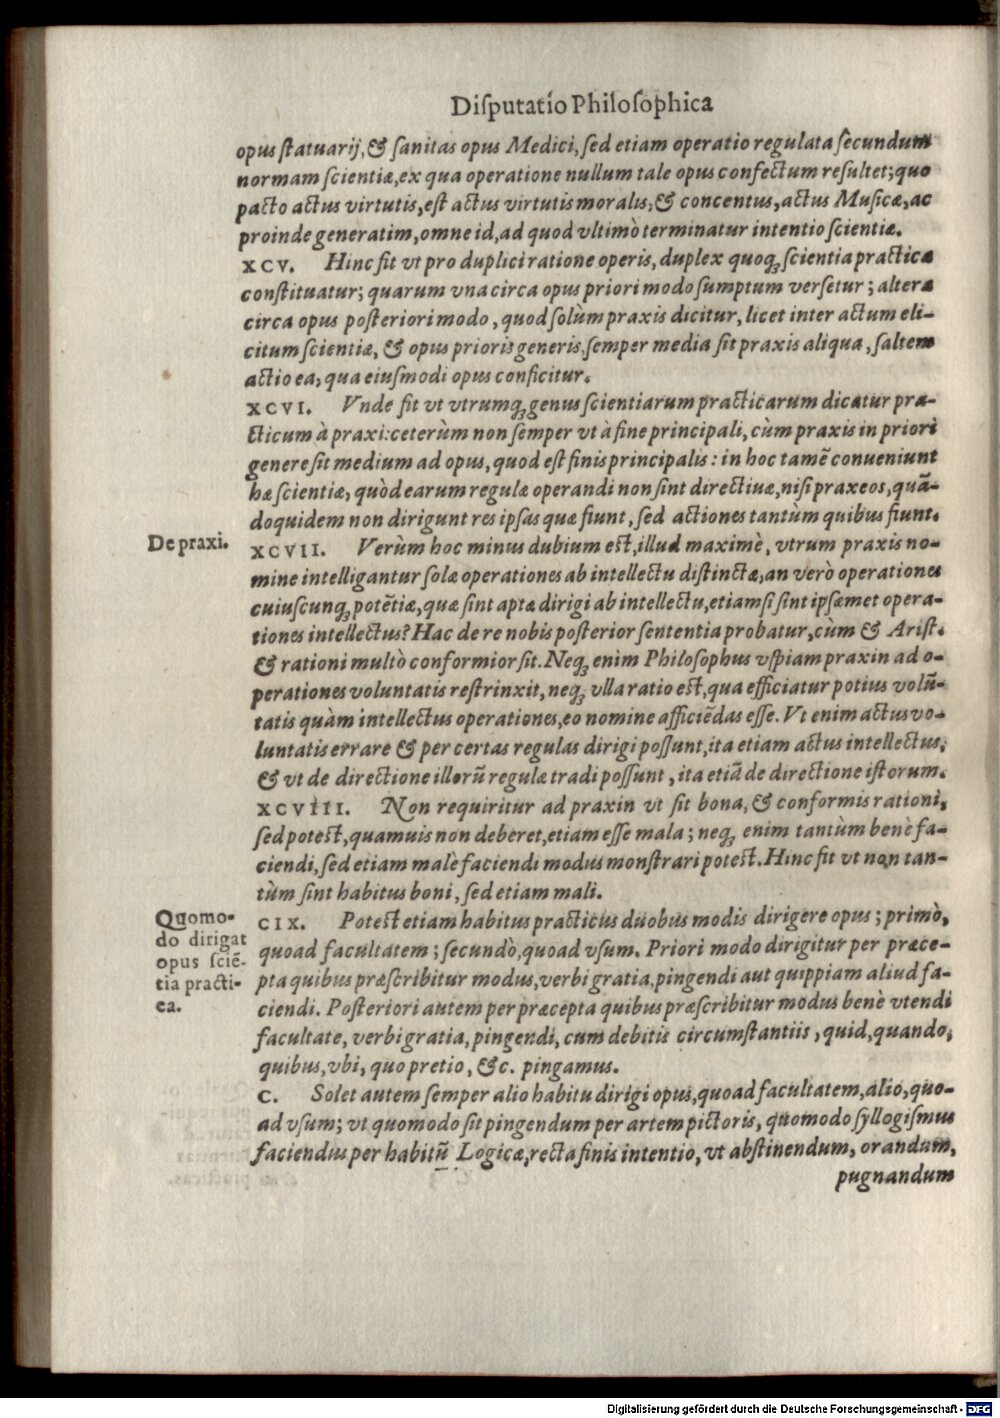 Diſputatio Philoſophica
opus ſtatuarij, & ſanitas opus Medici, ſed etiam operatio regulata ſecundum
normam ſcientiæ, ex qua operatione nullum tale opus confectum reſultet; quo
pacto actus virtutis, eſt actus virtutis moralis, & concentus, actus Muſicæ, ac
proinde generatim, omne id, ad quod vltimò terminatur intentio ſcientiæ.
XCV. Hinc fit vt pro duplici ratione operis, duplex quoq; ſcientia practica
conſtituatur; quarum vna circa opus priori modo ſumptum verſetur; altera
circa opus poſteriori modo, quod ſolùm praxis dicitur, licet inter actum eli-
citum ſcientiæ, & opus prioris generis, ſemper media ſit praxis aliqua, ſaltem
actio ea, qua eiuſmodi opus conficitur.
XCVI. Vnde fit vt vtrumq; genus ſcientiarum practicarum dicatur pra-
cticum à praxi: ceterùm non ſemper vt à fine principali, cùm praxis in priori
genere ſit medium ad opus, quod eſt finis principalis: in hoc tamē conueniunt
hæ ſcientiæ, quòd earum regulæ operandi non ſint directiuæ, niſi praxeos, quā-
doquidem non dirigunt res ipſas quæ fiunt, ſed actiones tantùm quibus fiunt.
De praxi.
XCVII. Verùm hoc minus dubium eſt, illud maximè, vtrum praxis no-
mine intelligantur ſolæ operationes ab intellectu diſtinctæ, an verò operationes
cuiuſcunq; potētiæ, quæ ſint aptæ dirigi ab intellectu, etiamſi ſint ipſæmet opera-
tiones intellectus? Hac de re nobis poſterior ſententia probatur, cùm & Ariſt.
& rationi multò conformior ſit. Neq; enim Philoſophus vſpiam praxin ad o-
perationes voluntatis reſtrinxit, neq; vlla ratio eſt, qua efficiatur potius volū-
tatis quàm intellectus operationes, eo nomine afficiēdas eſſe. Vt enim actus vo-
luntatis errare & per certas regulas dirigi poſſunt, ita etiam actus intellectus,
& vt de directione illorū regulæ tradi poſſunt, ita etiā de directione iſtorum.
XCVIII. Non requiritur ad praxin vt ſit bona, & conformis rationi,
ſed poteſt, quamuis non deberet, etiam eſſe mala; neq; enim tantùm benè fa-
ciendi, ſed etiam malè faciendi modus monſtrari poteſt. Hinc fit vt non tan-
tùm ſint habitus boni, ſed etiam mali.
Quomo-
do dirigat
opus ſciē-
tia practi-
ca.
CIX. Poteſt etiam habitus practicus duobus modis dirigere opus; primò,
quoad facultatem; ſecundò, quoad vſum. Priori modo dirigitur per præce-
pta quibus præſcribitur modus, verbi gratia, pingendi aut quippiam aliud fa-
ciendi. Poſteriori autem per præcepta quibus præſcribitur modus benè vtendi
facultate, verbi gratia, pingendi, cum debitis circumſtantiis, quid, quando,
quibus, vbi, quo pretio, &c. pingamus.
C. Solet autem ſemper alio habitu dirigi opus, quoad facultatem, alio, quo-
ad vſum; vt quomodo ſit pingendum per artem pictoris, quomodo ſyllogiſmus
faciendus per habitū Logicæ, recta finis intentio, vt abſtinendum, orandum,
pugnandum
Digitalisierung gefördert durch die Deutsche Forschungsgemeinschaft - DFG